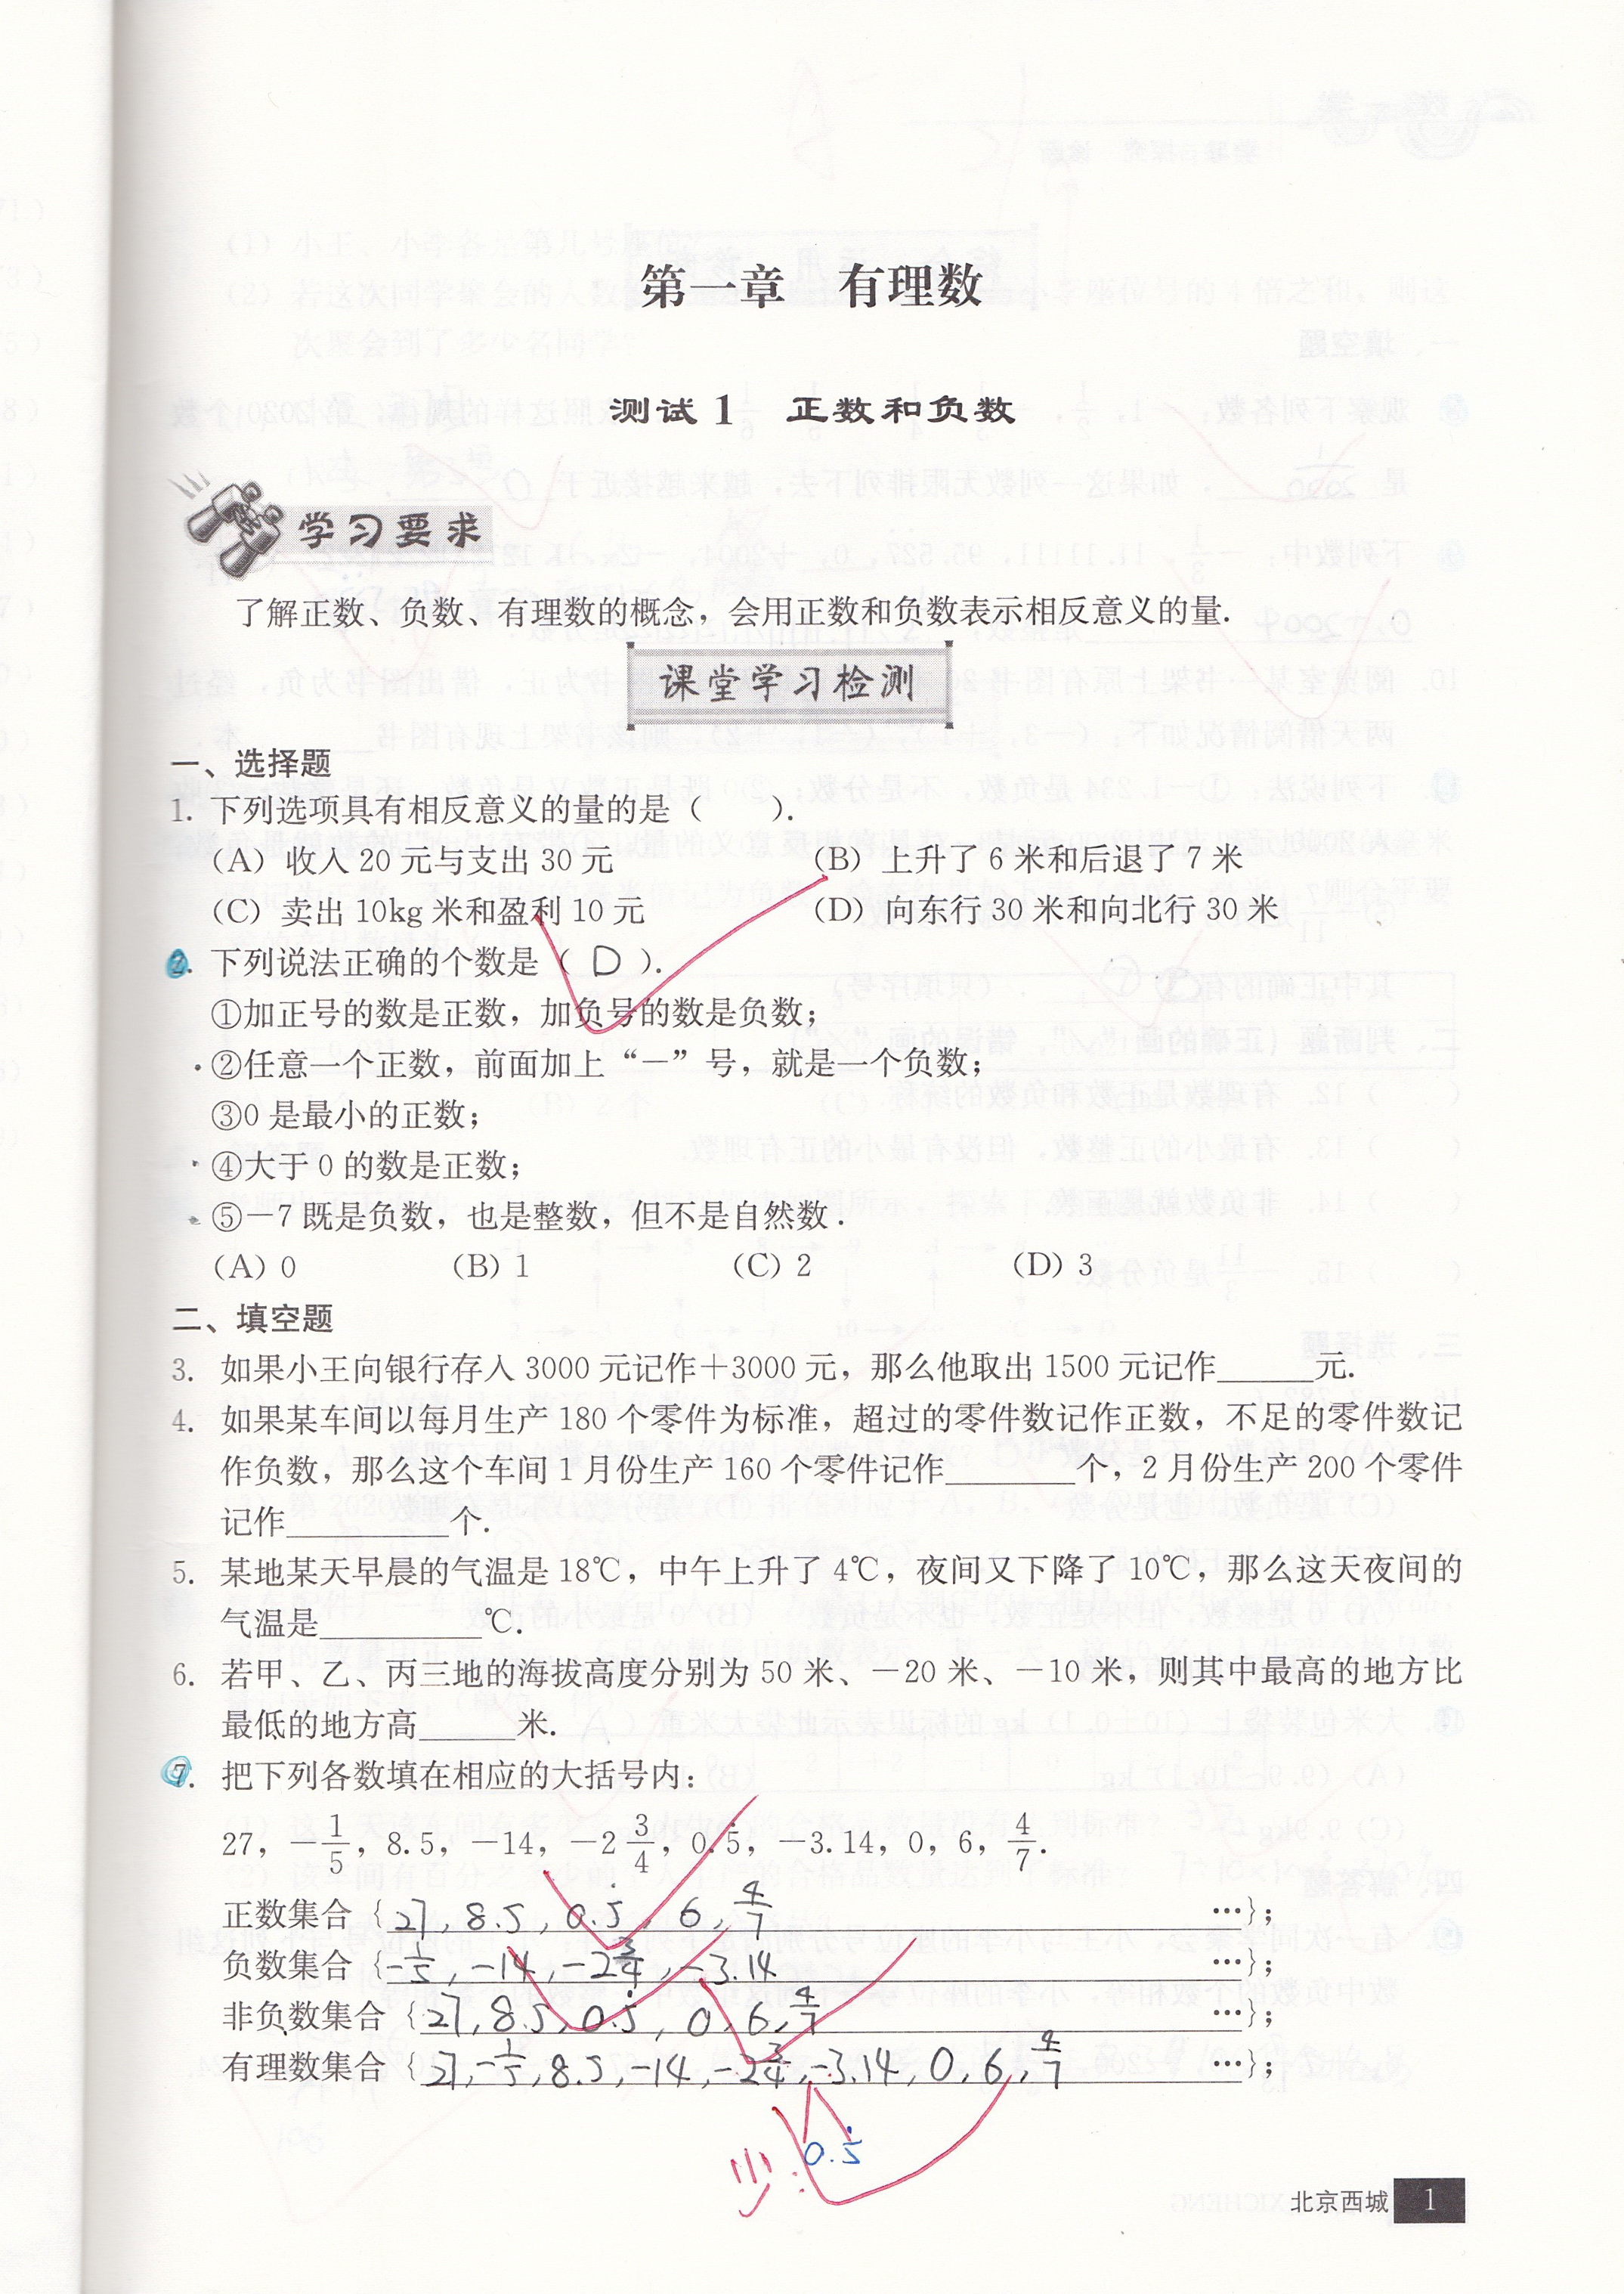 第一章 有理数
测试1 正数和负数
学习要求
了解正数、负数、有理数的概念，会用正数和负数表示相反意义的量.
课堂学习检测
一、选择题
1. 下列选项具有相反意义的量的是（ ）.
（A）收入20元与支出30元 （B）上升了6米和后退了7米
（C）卖出10kg米和盈利10元 （D）向东行30米和向北行30米
2. 下列说法正确的个数是（ D ）.
①加正号的数是正数，加负号的数是负数；
②任意一个正数，前面加上“－”号，就是一个负数；
③0是最小的正数；
④大于0的数是正数；
⑤－7既是负数，也是整数，但不是自然数.
（A）0 （B）1 （C）2 （D）3
二、填空题
3. 如果小王向银行存入3000元记作＋3000元，那么他取出1500元记作______元.
4. 如果某车间以每月生产180个零件为标准，超过的零件数记作正数，不足的零件数记
作负数，那么这个车间1月份生产160个零件记作________个，2月份生产200个零件
记作__________个.
5. 某地某天早晨的气温是18℃，中午上升了4℃，夜间又下降了10℃，那么这天夜间的
气温是__________℃.
6. 若甲、乙、丙三地的海拔高度分别为50米、－20米、－10米，则其中最高的地方比
最低的地方高______米.
7. 把下列各数填在相应的大括号内：
27，－1/5，8.5，－14，－2 3/4，0.5̇，－3.14，0，6，4/7.
正数集合｛27, 8.5, 0.5̇, 6, 4/7 …｝；
负数集合｛-1/5, -14, -2 3/4, -3.14 …｝；
非负数集合｛27, 8.5, 0.5̇, 0, 6, 4/7 …｝；
有理数集合｛27, -1/5, 8.5, -14, -2 3/4, -3.14, 0, 6, 4/7 …｝；
少: 0.5̇
北京西城 1